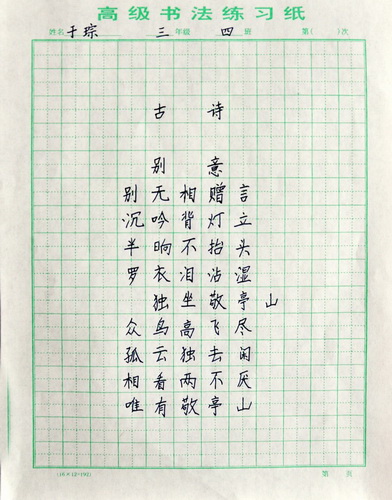 高级书法练习纸
姓名 于琮 三 年级 四 班 第( )次
古 诗
别 意
别无相赠言
沉吟背灯立
半晌不抬头
罗衣泪沾湿
独坐敬亭山
众鸟高飞尽
孤云独去闲
相看两不厌
唯有敬亭山
(16×12=192) 第 页